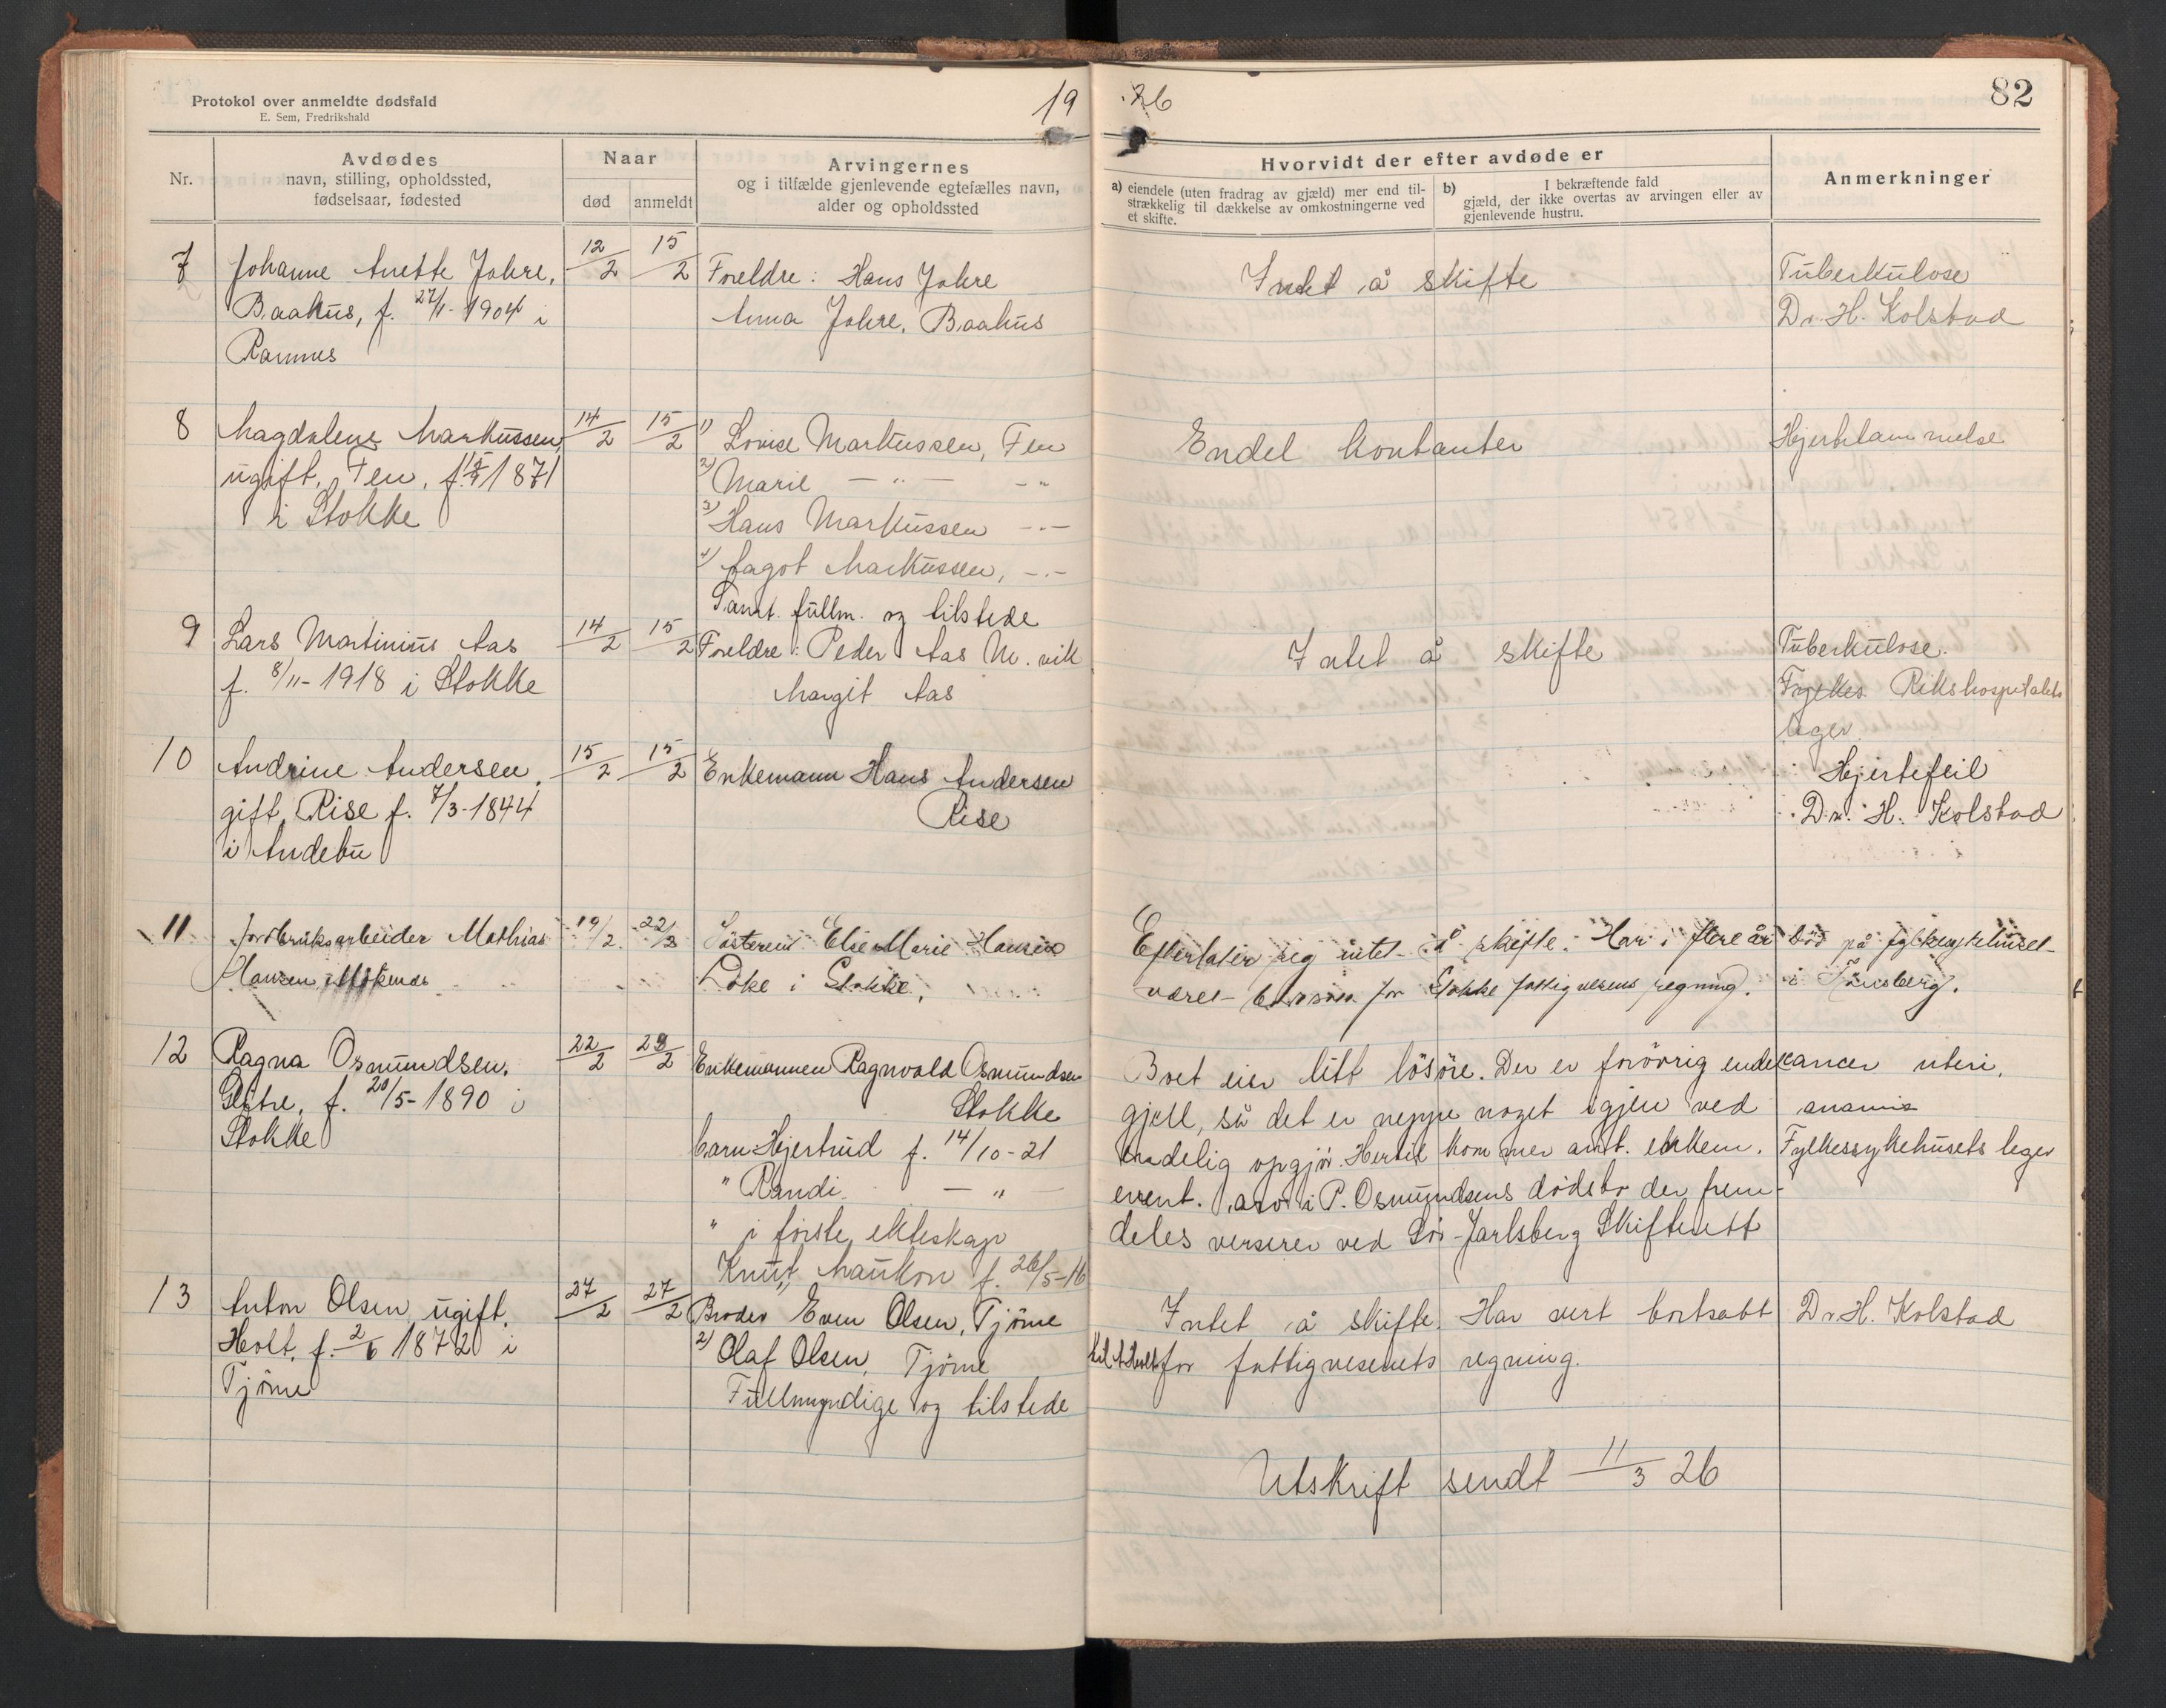 Protokol over anmeldte dødsfald
E. Sem, Fredrikshald
19
26
82
Nr.
Avdødes
navn, stilling, opholdssted,
fødselsaar, fødested
Naar
død
anmeldt
Arvingernes
og i tilfælde gjenlevende egtefælles navn,
alder og opholdssted
Hvorvidt der efter avdøde er
a) eiendele (uten fradrag av gjæld) mer end til-
strækkelig til dækkelse av omkostningerne ved
et skifte.
b) I bekræftende fald
gjæld, der ikke overtas av arvingen eller av
gjenlevende hustru.
Anmerkninger
7 Johanne Anette Johre, 12/2 15/2 Foreldre: Hans Johre Intet å skifte Tuberkulose
Baahus, f. 27/1-1904 i Anna Johre, Baahus Dr. H. Kolstad
Ramnes
8 Magdalene Markussen, 14/2 15/2 1) Lovise Markussen, Fen Endel kontanter Hjertelammelse
ugift, Fen, f. 1871 2) Marie — " — - "
i Stokke 3) Hans Markussen —"—
4) Jagot Markussen, —"—
Samt. fullm. og tilstede
9 Lars Martinius Aas 14/2 15/2 Foreldre: Peder Aas M. vik Intet å skifte Tuberkulose.
f. 8/11-1918 i Stokke Margit Aas Rikshospitalets
læger
10 Andrine Andersen, 15/2 15/2 Enkemann Hans Andersen Hjertefeil
gift, Rise f. 7/3-1844 Rise Dr. H. Kolstad
i Andebu
11 Jordbruksarbeider Mathias 19/2 22/2 Søsteren Else Marie Hansen Efterlater sig intet å skifte. Har i flere år død på fylkesykehuset
Hansen Løke i Stokke, været bortsatt for Stokke fattigvesens regning. i Tønsberg.
12 Ragna Osmundsen, 22/2 23/2 Enkemannen Ragnvald Osmundsen Boet eier litt løsøre. Der er forøvrig endel cancer uteri,
f. 20/5-1890 i Stokke gjell, så det er neppe noget igjen ved anamia
Stokke barn Hjertrud f. 14/10-21 endelig opgjør. Hertil kommer ant. enkem. Fylkessykehusets leger
" Randi — " — event. arv i P. Osmundsens dødsbo der frem-
" i første ekteskap deles verserer ved Sør-Jarlsberg Skifterett
Knut Haukon f. 26/5-16
13 Anton Olsen, ugift, 27/2 27/2 Broder Even Olsen, Tjøme Intet å skifte. Har vert bortsatt Dr. H. Kolstad
Holt, f. 2/6 1872 i 2) Olaf Olsen, Tjøme til Holt for fattigvesenets regning.
Tjøme Fullmyndige og tilstede
Utskrift sendt 11/3 26